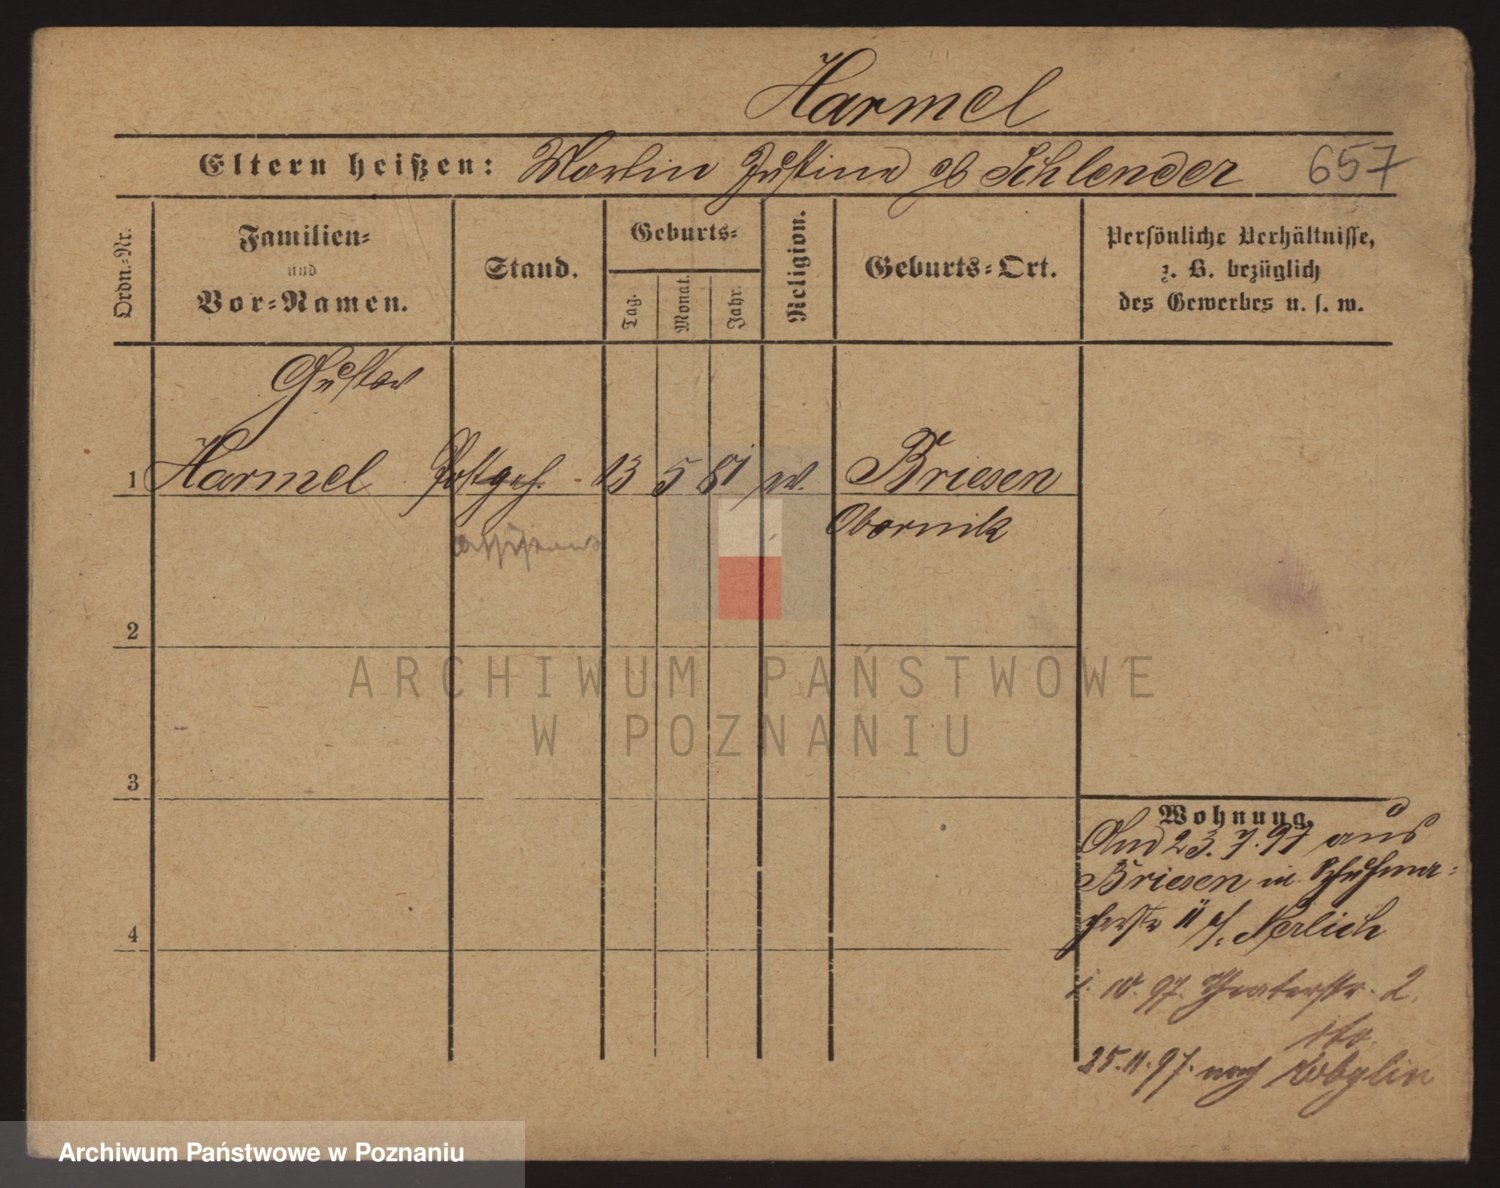 Harmel
Eltern heißen: Martin Justine gb Schlender 657
Ordn.-Nr.
Familien-
und
Vor-Namen.
Stand.
Geburts-
Tag.
Monat.
Jahr.
Religion.
Geburts-Ort.
Persönliche Verhältnisse,
z. B. bezüglich
des Gewerbes u. s. w.
Gustav
1 Harmel Postgeh. 13 5 81 Briesen
Obornik
2
ARCHIWUM PAŃSTWOWE
W POZNANIU
3
Wohnung.
23. 7. 97 aus
Briesen in Schuhma-
cherstr 11
1. 10. 97. Theaterstr. 2.
25. 11. 97. nach Kobylin
4
Archiwum Państwowe w Poznaniu